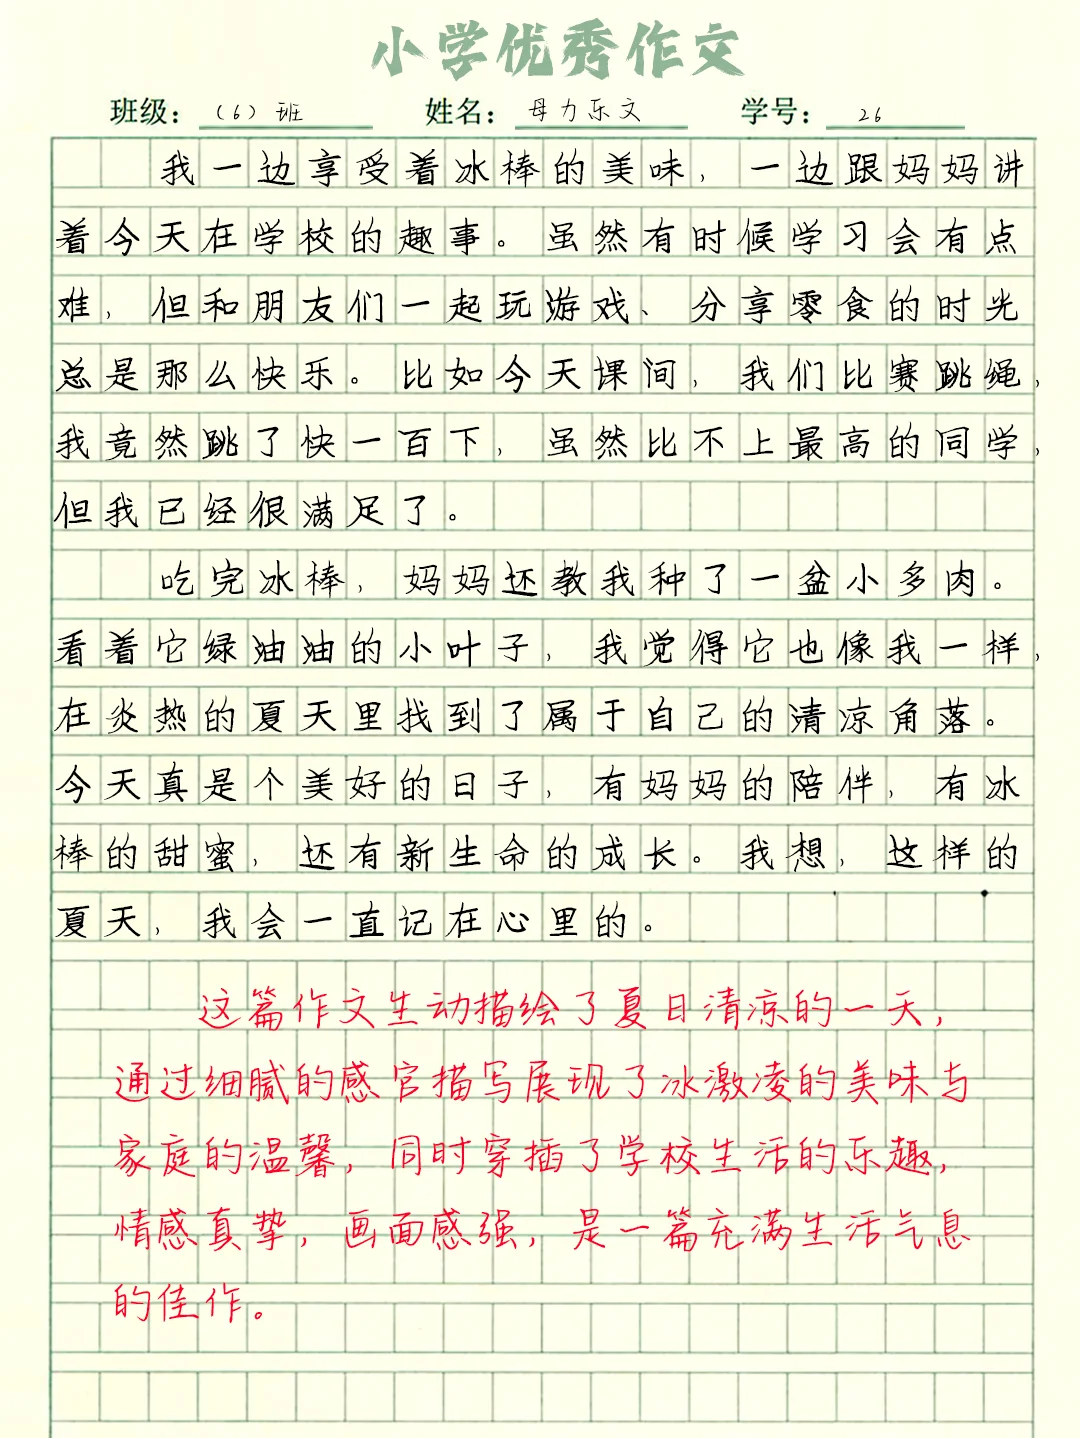 小学优秀作文
班级：（6）班 姓名：母力乐文 学号：26
我一边享受着冰棒的美味，一边跟妈妈讲
着今天在学校的趣事。虽然有时候学习会有点
难，但和朋友们一起玩游戏、分享零食的时光
总是那么快乐。比如今天课间，我们比赛跳绳，
我竟然跳了快一百下，虽然比不上最高的同学，
但我已经很满足了。
吃完冰棒，妈妈还教我种了一盆小多肉。
看着它绿油油的小叶子，我觉得它也像我一样，
在炎热的夏天里找到了属于自己的清凉角落。
今天真是个美好的日子，有妈妈的陪伴，有冰
棒的甜蜜，还有新生命的成长。我想，这样的
夏天，我会一直记在心里的。
这篇作文生动描绘了夏日清凉的一天，
通过细腻的感官描写展现了冰激凌的美味与
家庭的温馨，同时穿插了学校生活的乐趣，
情感真挚，画面感强，是一篇充满生活气息
的佳作。